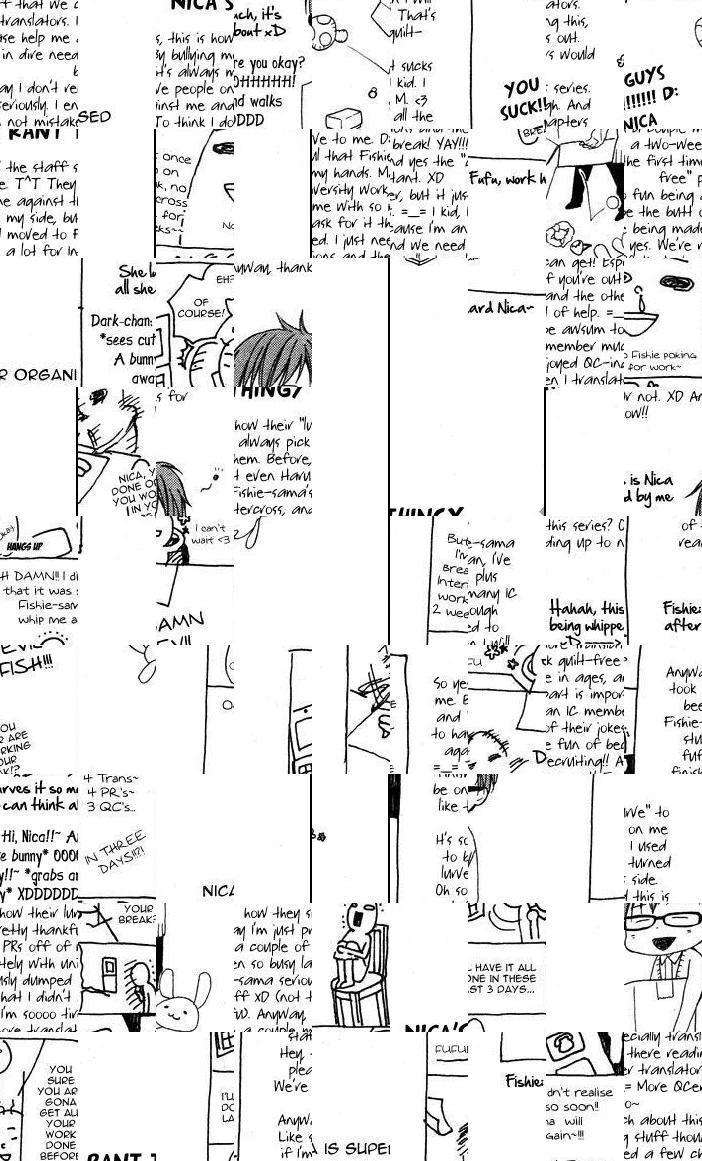 t that we
translators. I
se help me
in dire need
ay I don't re
seriously. I en
not mistake
SED
s, this is how
by bullying m
t's always m
ve people on
inst me and
To think I do
NICA'S
ach, it's
bout xD
re you okay?
OHHHHH!
nd walks
DDD
That's
guilt-
t sucks
kid. I
M. <3
all the
YOU
SUCK!!
ators.
ng this,
s out.
s would
series.
gh. And
apters
GUYS
!!!!!!! D:
NICA
RANT
the staff s
e. T^T They
e against th
my side, but
moved to F
a lot for In
once
on
k, no
cross
for
ks~
ve to me. D:
ll that Fishie
my hands. M
versity Work
me with so
ask for it th
ed. I just nee
break! YAY!!!
nd yes the
tant. XD
er, but it jus
=_= I kid, I
ause I'm an
nd we need
Fufu, work h
BRE
a two-wee
the first time
free" p
fun being a
e the butt o
being made
yes. We're r
R ORGANI
She l
all she
Dark-chan:
*sees cut
A bunn
awa
EH?
OF
COURSE!
nyway, thank
ard Nica~
can get! Espi
f you're out
and the othe
l of help. =_
be awsum to
member muc
joyed QC-ing
en I translat
Fishie poking
for work~
NICA, Y
DONE O
YOU WO
IN YO
s for
THING?
how their "lu
always pick
hem. Before,
t even Haru
Fishie-sama's
tercross, and
THINGY
or not. XD An
ow!!
is Nica
d by me
Okay
HANGS UP
H DAMN!! I di
that it was
Fishie-sam
whip me a
I can't
wait <3
AMN
But
I'm
Brea
Inter
work
2 wee
-sama
an, I've
plus
many IC
ough
d to
I will
this series? C
ding up to n
Hahah, this
being whippe
of t
rea
Fishie:
after
EVIL
FISH!!!
OU
R ARE
RKING
OUR
K!?
So ye
me. E
and
to ha
aga
=_=
FU
ck guilt-free
e in ages, an
part is impor
an IC memb
of their jokes
e fun of bec
Decruiting!! A
Anywa
took
bee
Fishie-
stu
fuf
finish
rves it so m
can think a
Hi, Nica!!~ A
e bunny* OOO
y!!~ *grabs a
y* XDDDDDD
4 Trans~
4 PR's~
3 QC's...
IN THREE
DAYS!!?!
NICA
be on
like t
H's so
to b
lurve
Oh so
rve" to
on me
I used
turned
side.
d this is
how their lur
retty thankfu
PRs off of
tely with uni
usly dumped
hat I didn't
I'm soooo tir
ore translat
YOUR
BREAK?
how they s
ay I'm just pr
a couple of
n so busy la
-sama seriou
ff XD (not t
ND. Anyway,
a couple m
NICA'S
HAVE IT ALL
ONE IN THESE
ST 3 DAYS...
YOU
SURE
YOU AR
GONA
GET ALL
YOUR
WORK
DONE
BEFORE
RANT T
I'LL
DO
LA
stat
Hey,
plea
We're
Anyw
Like s
if I'm
IS SUPE
FUFUFU
Fishie:
dn't realise
so soon!!
a will
gain~!!!
ecially transl
there readin
r translator
= More QCer
o~
ch about this
g stuff thou
ed a few ch